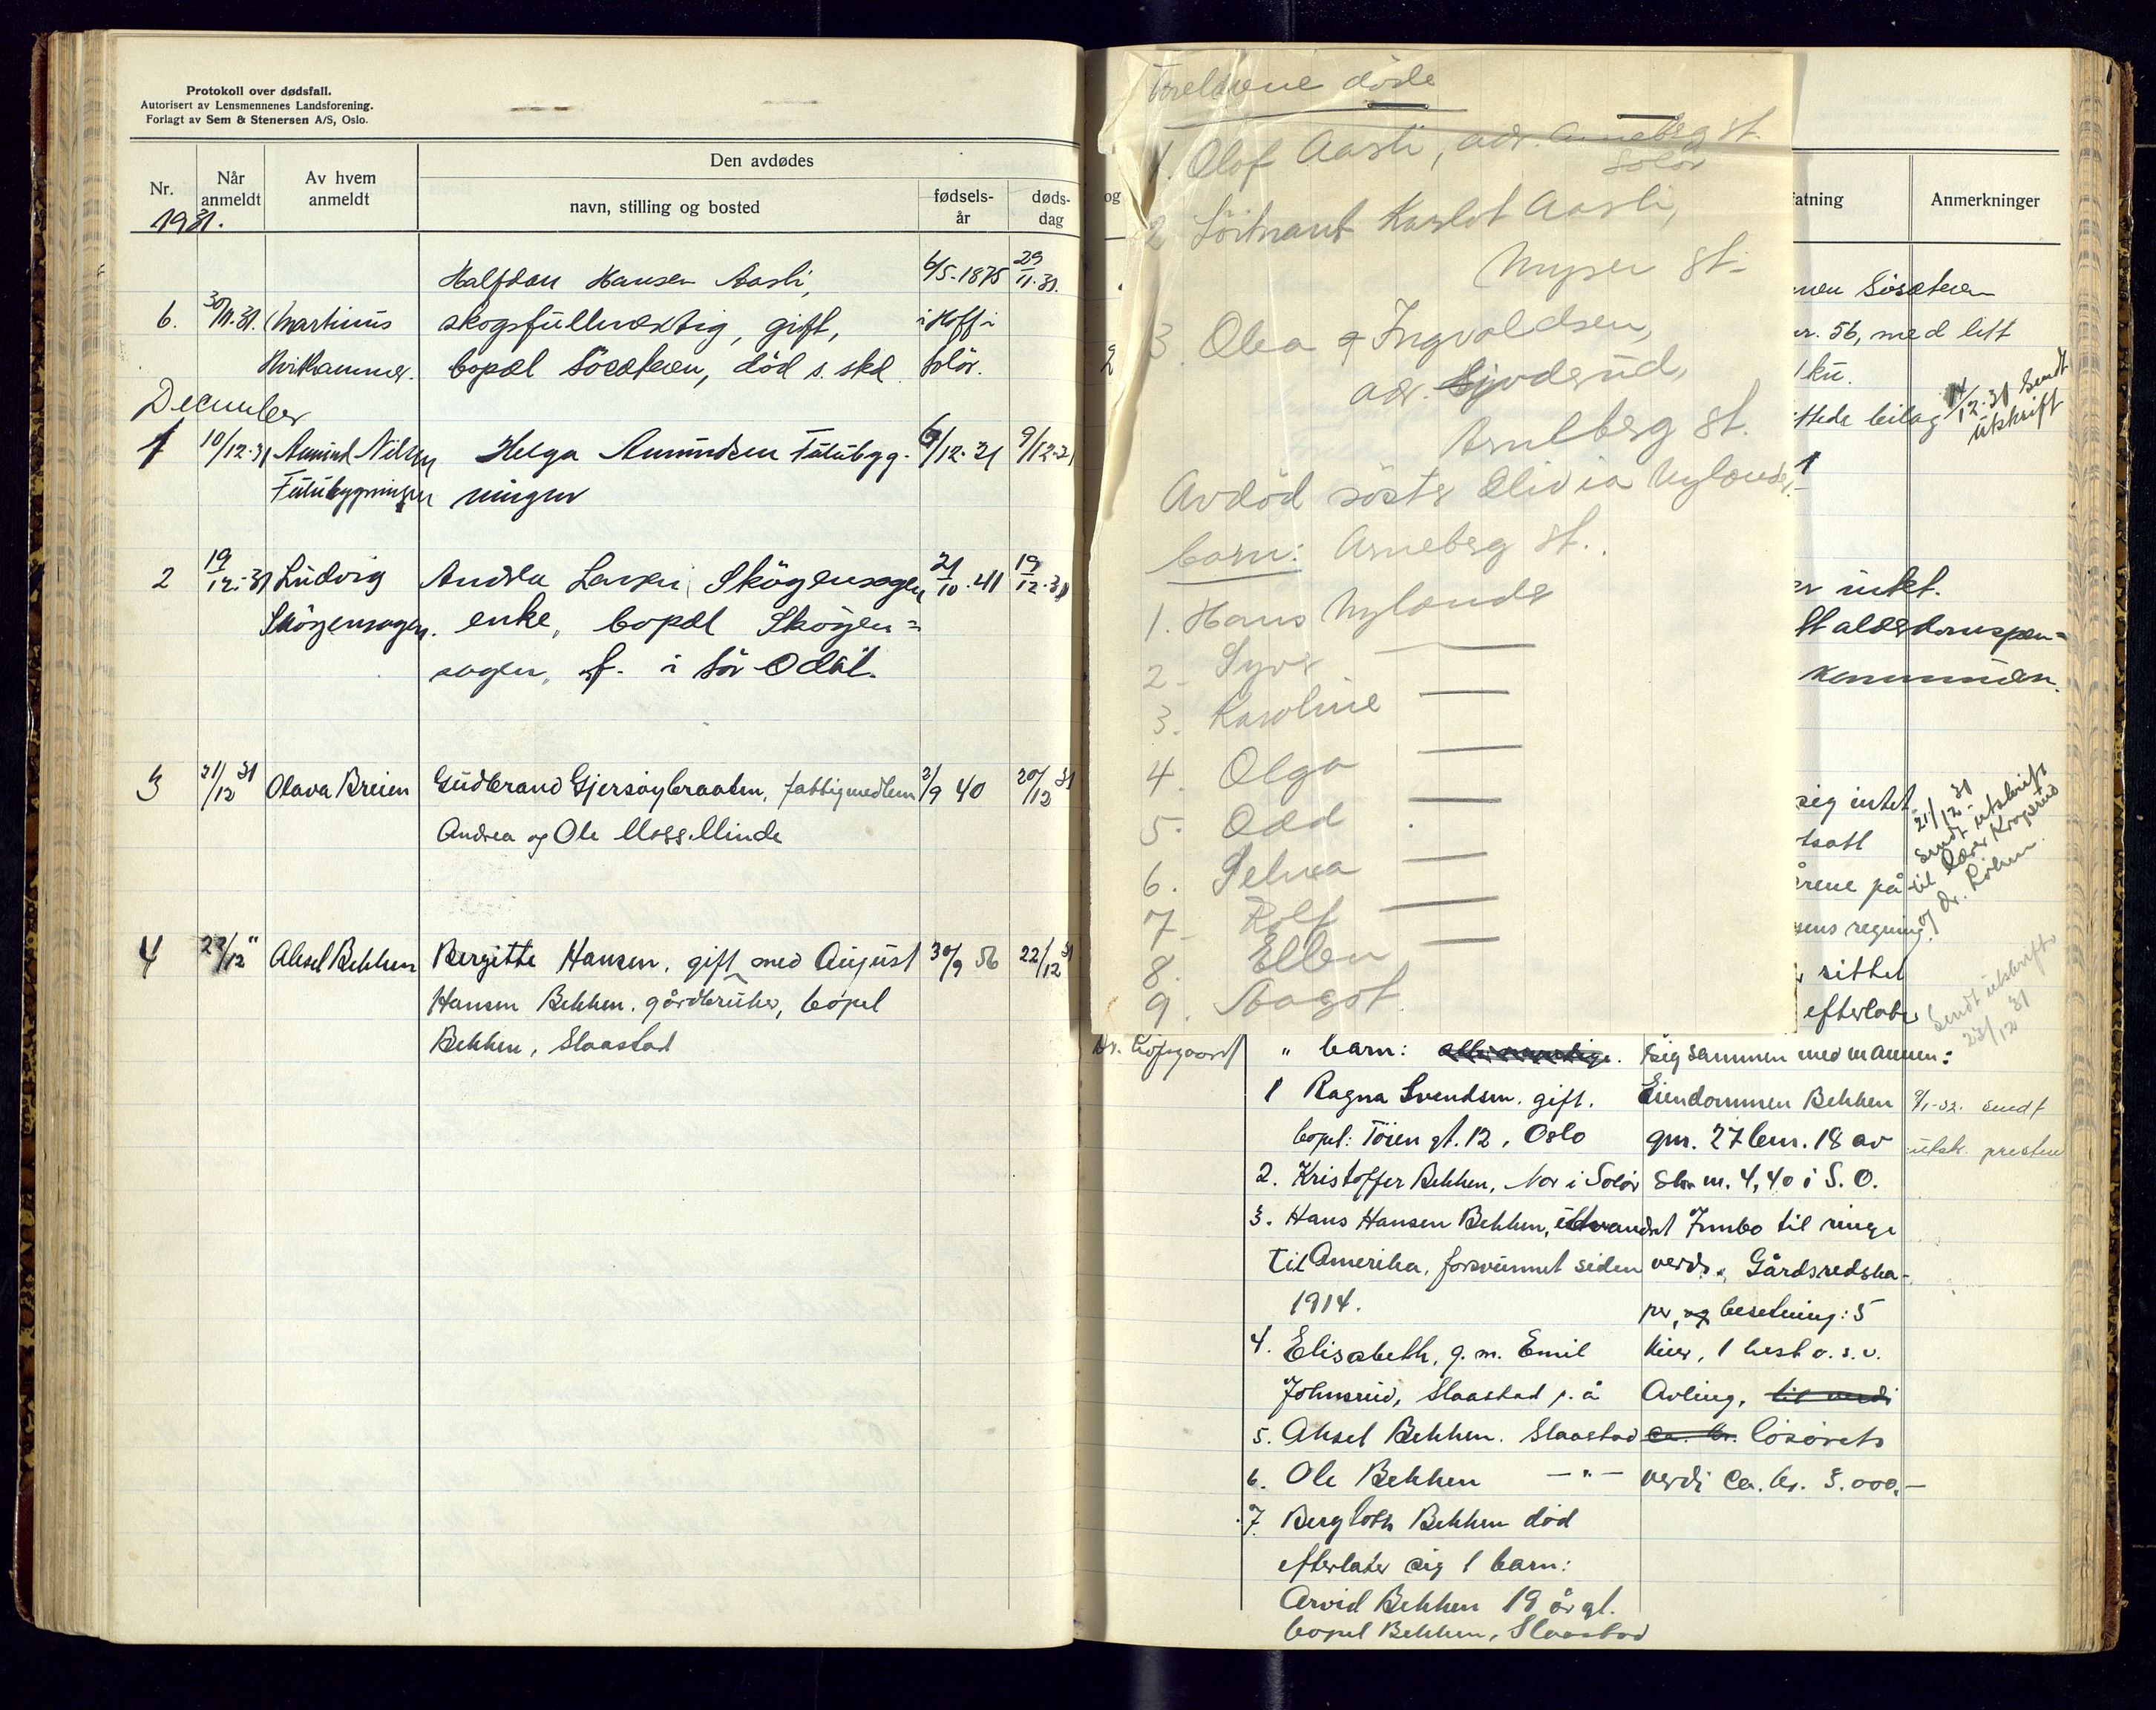 Protokoll over dødsfall.
Autorisert av Lensmennenes Landsforening.
Forlagt av Sem & Stenersen A/S, Oslo.
Nr.
Når anmeldt
Av hvem anmeldt
Den avdødes
navn, stilling og bosted
fødsels-år
døds-dag
1931.
Halfdan Hansen Aasli, 6/5-1875 29/11.31.
6. 30/11.31. Martinus skogsfullmektig, gift, i Hoff i
Kvithammer. bopæl Sösæteren, död s. skd. Solör.
December
1 10/12.31 Amund Nilsen Helga Amundsen Fulubygg- 6/12.31 9/12.31
Fulubygningen ningen
2 19/12.31 Ludvig Andrea Larsen Skögensagen 21/10.41 19/12.31
Skögensagen. enke, bopæl Skögen=
sagen, f. i Sör Odal.
3 21/12 31 Olava Breien Gudbrand Gjersøybraaten, fattigmedlem 2/9 40 20/12 31
Andrea og Ole Moss. Minde
4 22/12 " Aksel Bekken Bergitte Hansen, gift med August 30/9 56 22/12 31
Hansen Bekken. gårdbruker, bopel
Bekken, Slaastad
Foreldrene døde
1. Olof Aasli, adr. Arneberg st.
Solör
2 Löitnant Karlot Aasli,
Mysen st.
3. Olea g Ingvaldsen,
adr. Gjoderud,
Arneberg st.
Avdöd söster Olivia Nylænder
barn: Arneberg st..
1. Hans Nylænde
2- Syver —
3. Karoline —
4. Olga —
5. Odd —
6. Selma —
7- Rolf —
8. Ellen —
9. Aagot
og
fatning
Anmerkninger
Sösæteren
nr. 56, med litt
1 ku.
bilag
14/12.31 Sendt
utskrift
1
intet.
alderdomspen=
kommunen.
sig intet
tsatt
på
sens regning
21/12- 31
Sendt utskrift
til Lærer Kroperud
og dr. Löken.
sittet
efterlater
Sendt utskrift
23/12 31
" barn:
sig sammen med mannen:
1 Ragna Svendsen. gift. Eiendommen Bekken 9/1-32. sendt
bopel: Töien gt. 12, Oslo gnr. 27 bnr. 18 av utsk. presten
2. Kristoffer Bekken, Nor i Solör skm. 4,40 i S. O.
3. Hans Hansen Bekken, utvandret Innbo til ringe
til Amerika, forsvunnet siden verdi. Gårdsredska-
1914. per, og besetning: 5
4. Elisabeth, g. m. Emil kuer, 1 hest o. s. v.
Johnsrud, Slaastad p. å Avling, til verdi
5. Aksel Bekken. Slaastad ca. kr. lösörets
6. Ole Bekken —"— verdi ca. kr. 3.000,-
7. Bergloth Bekken död
efterlater sig 1 barn:
Arvid Bekken 19 år gl.
bopel Bekken, Slaastad